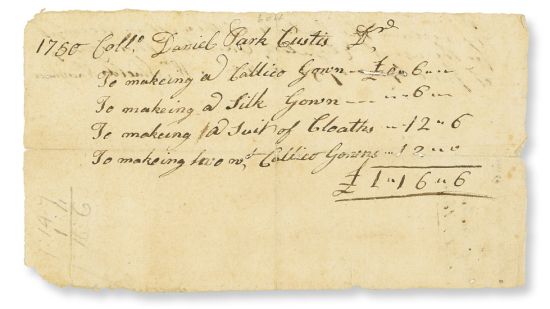 1750 Collo. Daniel Park Custis Dr
To makeing a Callico Gown -- £0 " 6 " "
To makeing a Silk Gown --- " " 6 " "
To makeing a Suit of Cloaths " " 12 " 6
To makeing two wt. Callico Gowns " 12 " 0
£ 1 " 16 " 6